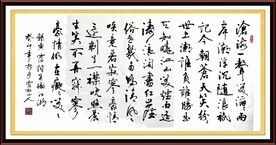 滄海一聲笑滔滔兩
岸潮浮沉隨浪只
記今朝蒼天笑紛
紛世上潮誰負誰勝出
天知曉江山笑烟雨遥
濤浪淘盡紅塵
俗世幾多嬌清風
笑竟惹寂寥豪情
還剩了一襟晚照蒼
生笑不再寂寥
豪情仍在癡癡笑笑